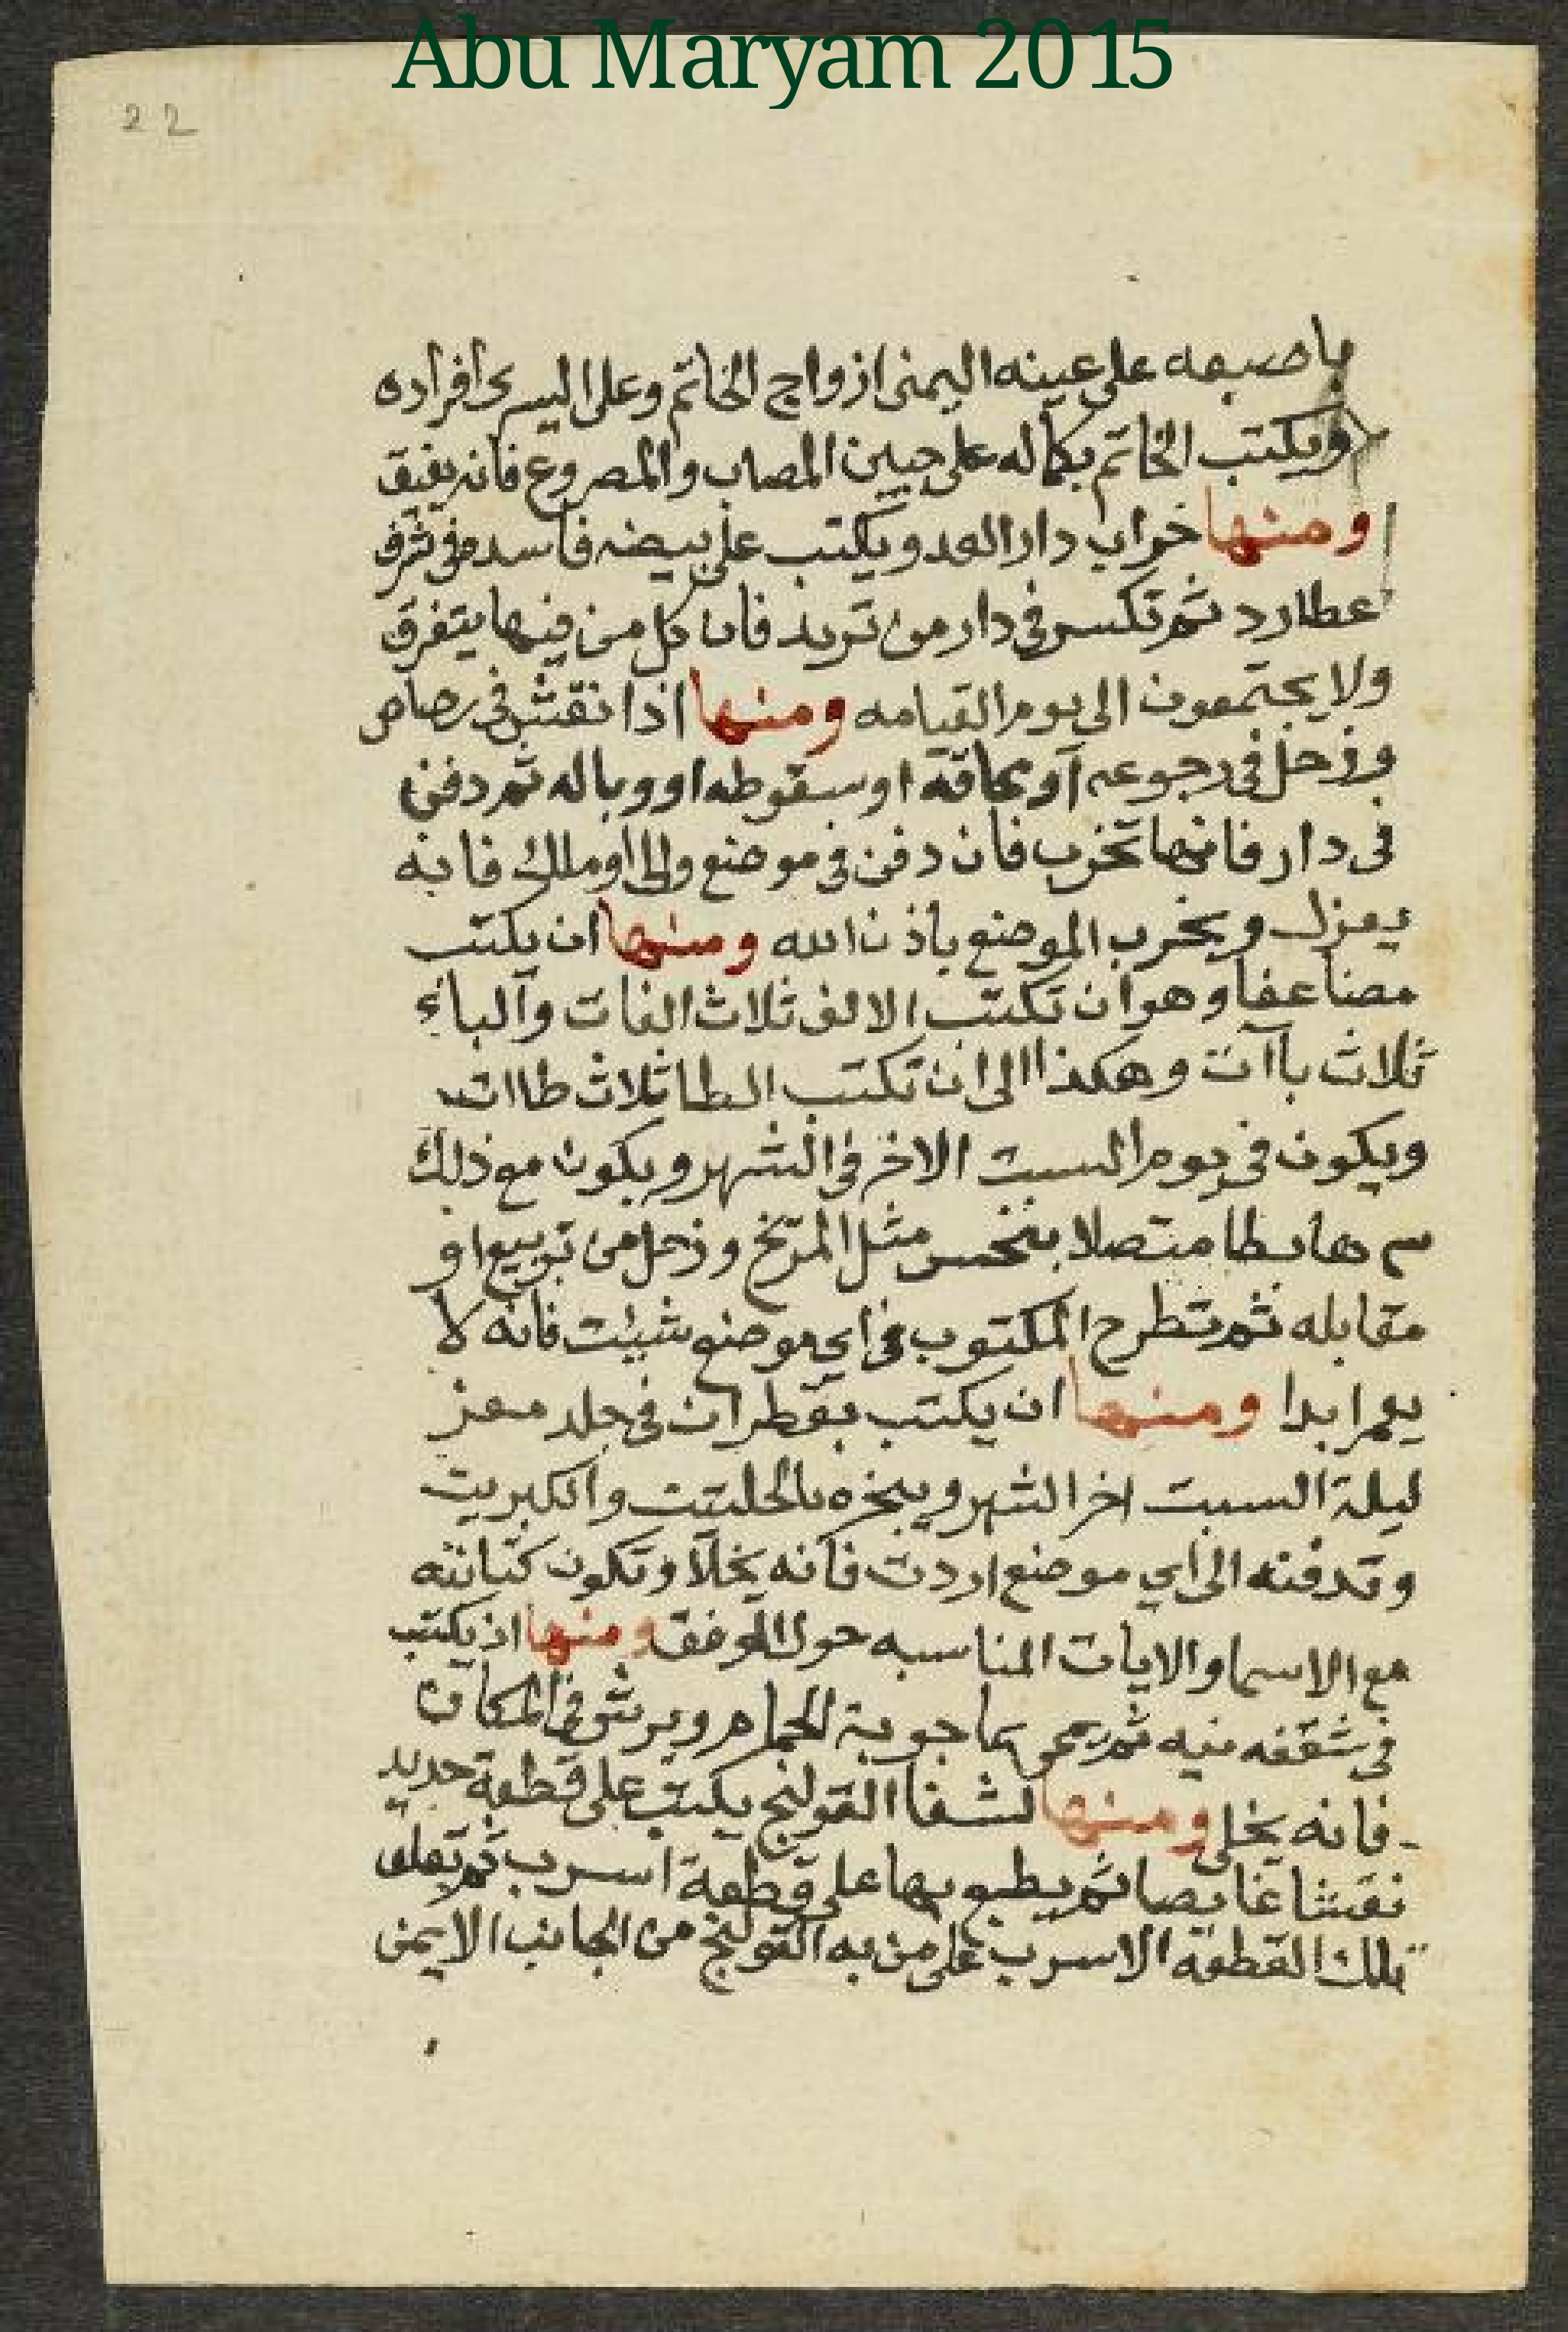 Abu Maryam 2015
22
باصبعه على عينه اليمنى ازواج الخاتم وعلى اليسرى افراده
ويكتب الخاتم بكماله على جبين المصاب والمصروع فانه يفيق
ومنها خراب دار العدو يكتب على بيضه فاسده في شرف
عطارد ثم تكسر في دار من تريد فان كل من فيها يتفرق
ولا يجتمعون الى يوم القيامه ومنها اذا نقش في رصاص
وزحل في رجوعه او محاقه او سقوطه او وباله ثم دفن
في دار فانها تخرب فان دفن في موضع والى او ملك فانه
يعزل ويخرب الموضع باذن الله ومنها ان يكتب
مضاعفا وهو ان تكتب الالف ثلاث الفات والباء
ثلاث باآت وهكذا الى ان تكتب الطا ثلاث طاات
ويكون في يوم السبت الاخر في الشهر ويكون مع ذلك
هابطا متصلا بنحس مثل المريخ وزحل من تربيع او
مقابله ثم تطرح المكتوب في اي موضع شيئت فانه لا
يعمر ابدا ومنها ان يكتب بقطران في جلد معز
ليلة السبت اخر الشهر ويبخره بالحلتيت والكبريت
وتدفنه الى اي موضع اردت فانه يخلا وتكون كتابته
مع الاسما والايات المناسبه حول الوفق ومنها ان يكتب
في شقفه نيه ثم يمحى بماجوية الحمام ويرش في المكان
فانه يخلى ومنها لشفا القولنج يكتب على قطعة حديد
نقشا غايصا ثم يطبع بها على قطعة اسرب ثم تعلق
تلك القطعة الاسرب على من به القولنج من الجانب الايمن